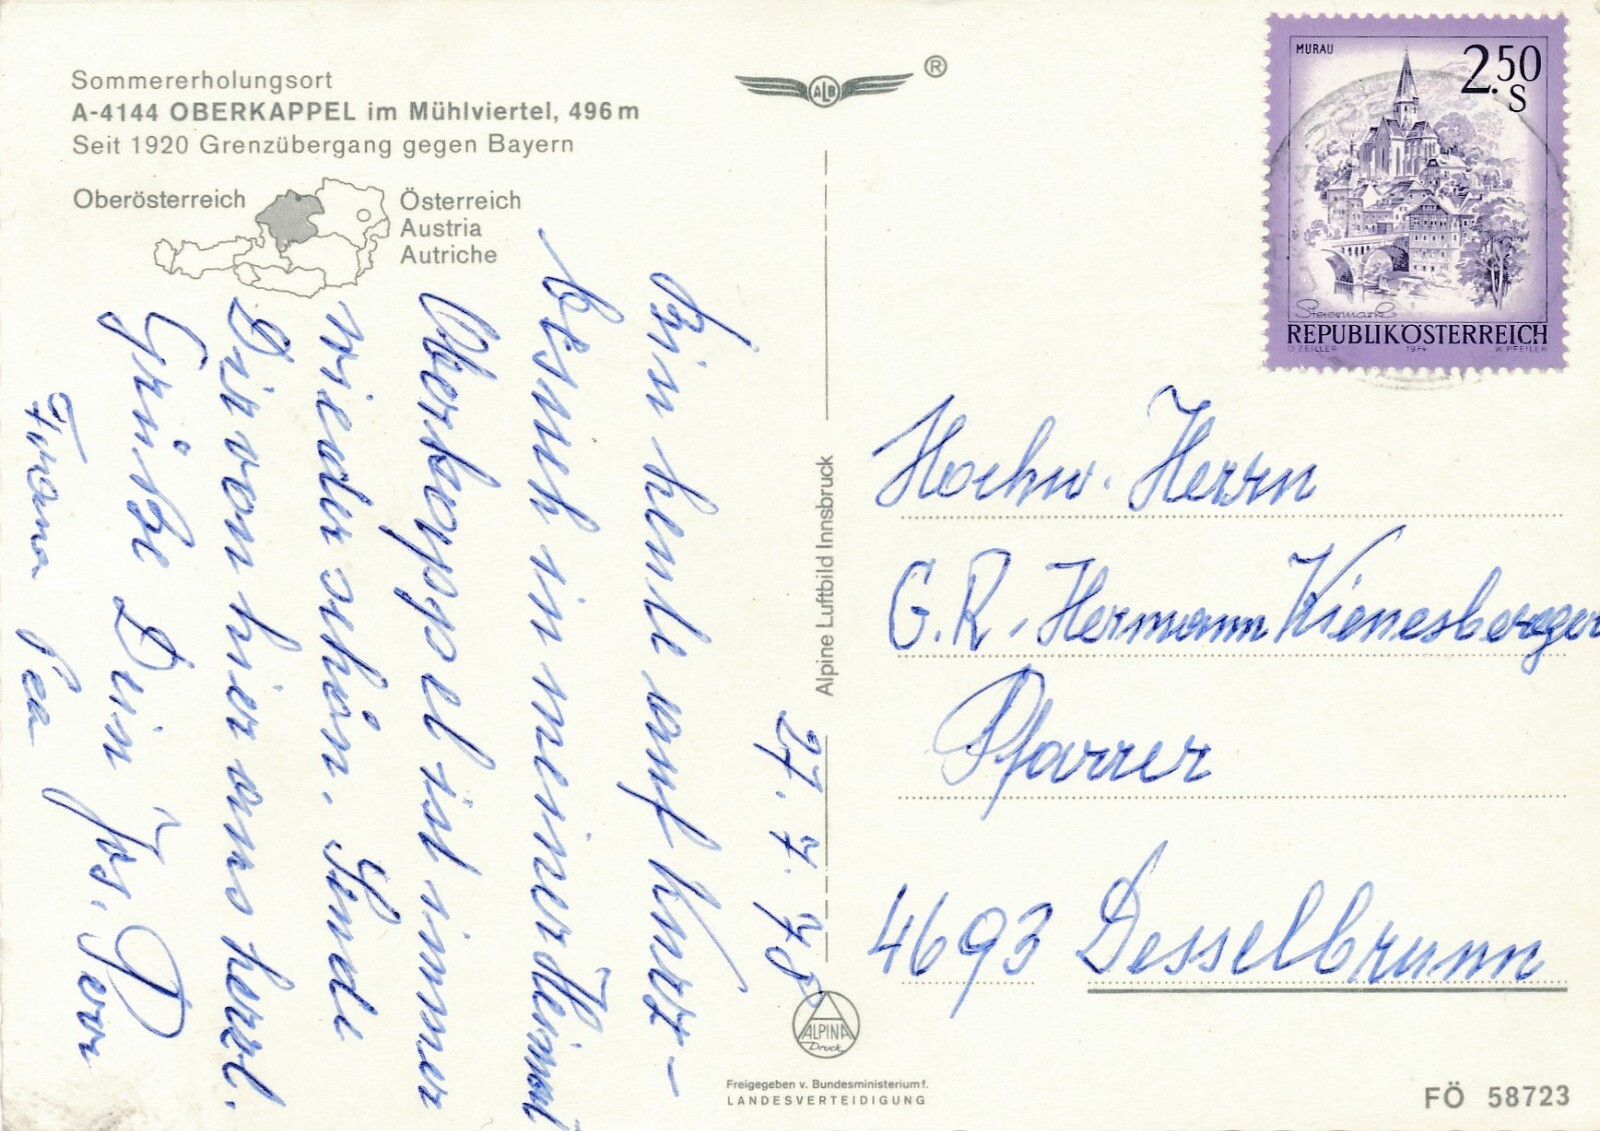 Sommererholungsort
A-4144 OBERKAPPEL im Mühlviertel, 496 m
Seit 1920 Grenzübergang gegen Bayern
Oberösterreich
Österreich
Austria
Autriche
27. 7. 78
Bin heute auf Kurz-
besuch in meiner Heimat
Oberkappel ist immer
wieder schön. Sende
Dir von hier aus herzl.
Grüße Dein Jos. P.
Alpine Luftbild Innsbruck
ALB
®
MURAU
2.50
S
Steiermark
REPUBLIK ÖSTERREICH
O. ZEILLER 1974 W. PFEILER
Hochw. Herrn
G. R. Hermann Kienesberger
Pfarrer
4693 Desselbrunn
ALPINA
Druck
Freigegeben v. Bundesministerium f.
LANDESVERTEIDIGUNG
FÖ 58723